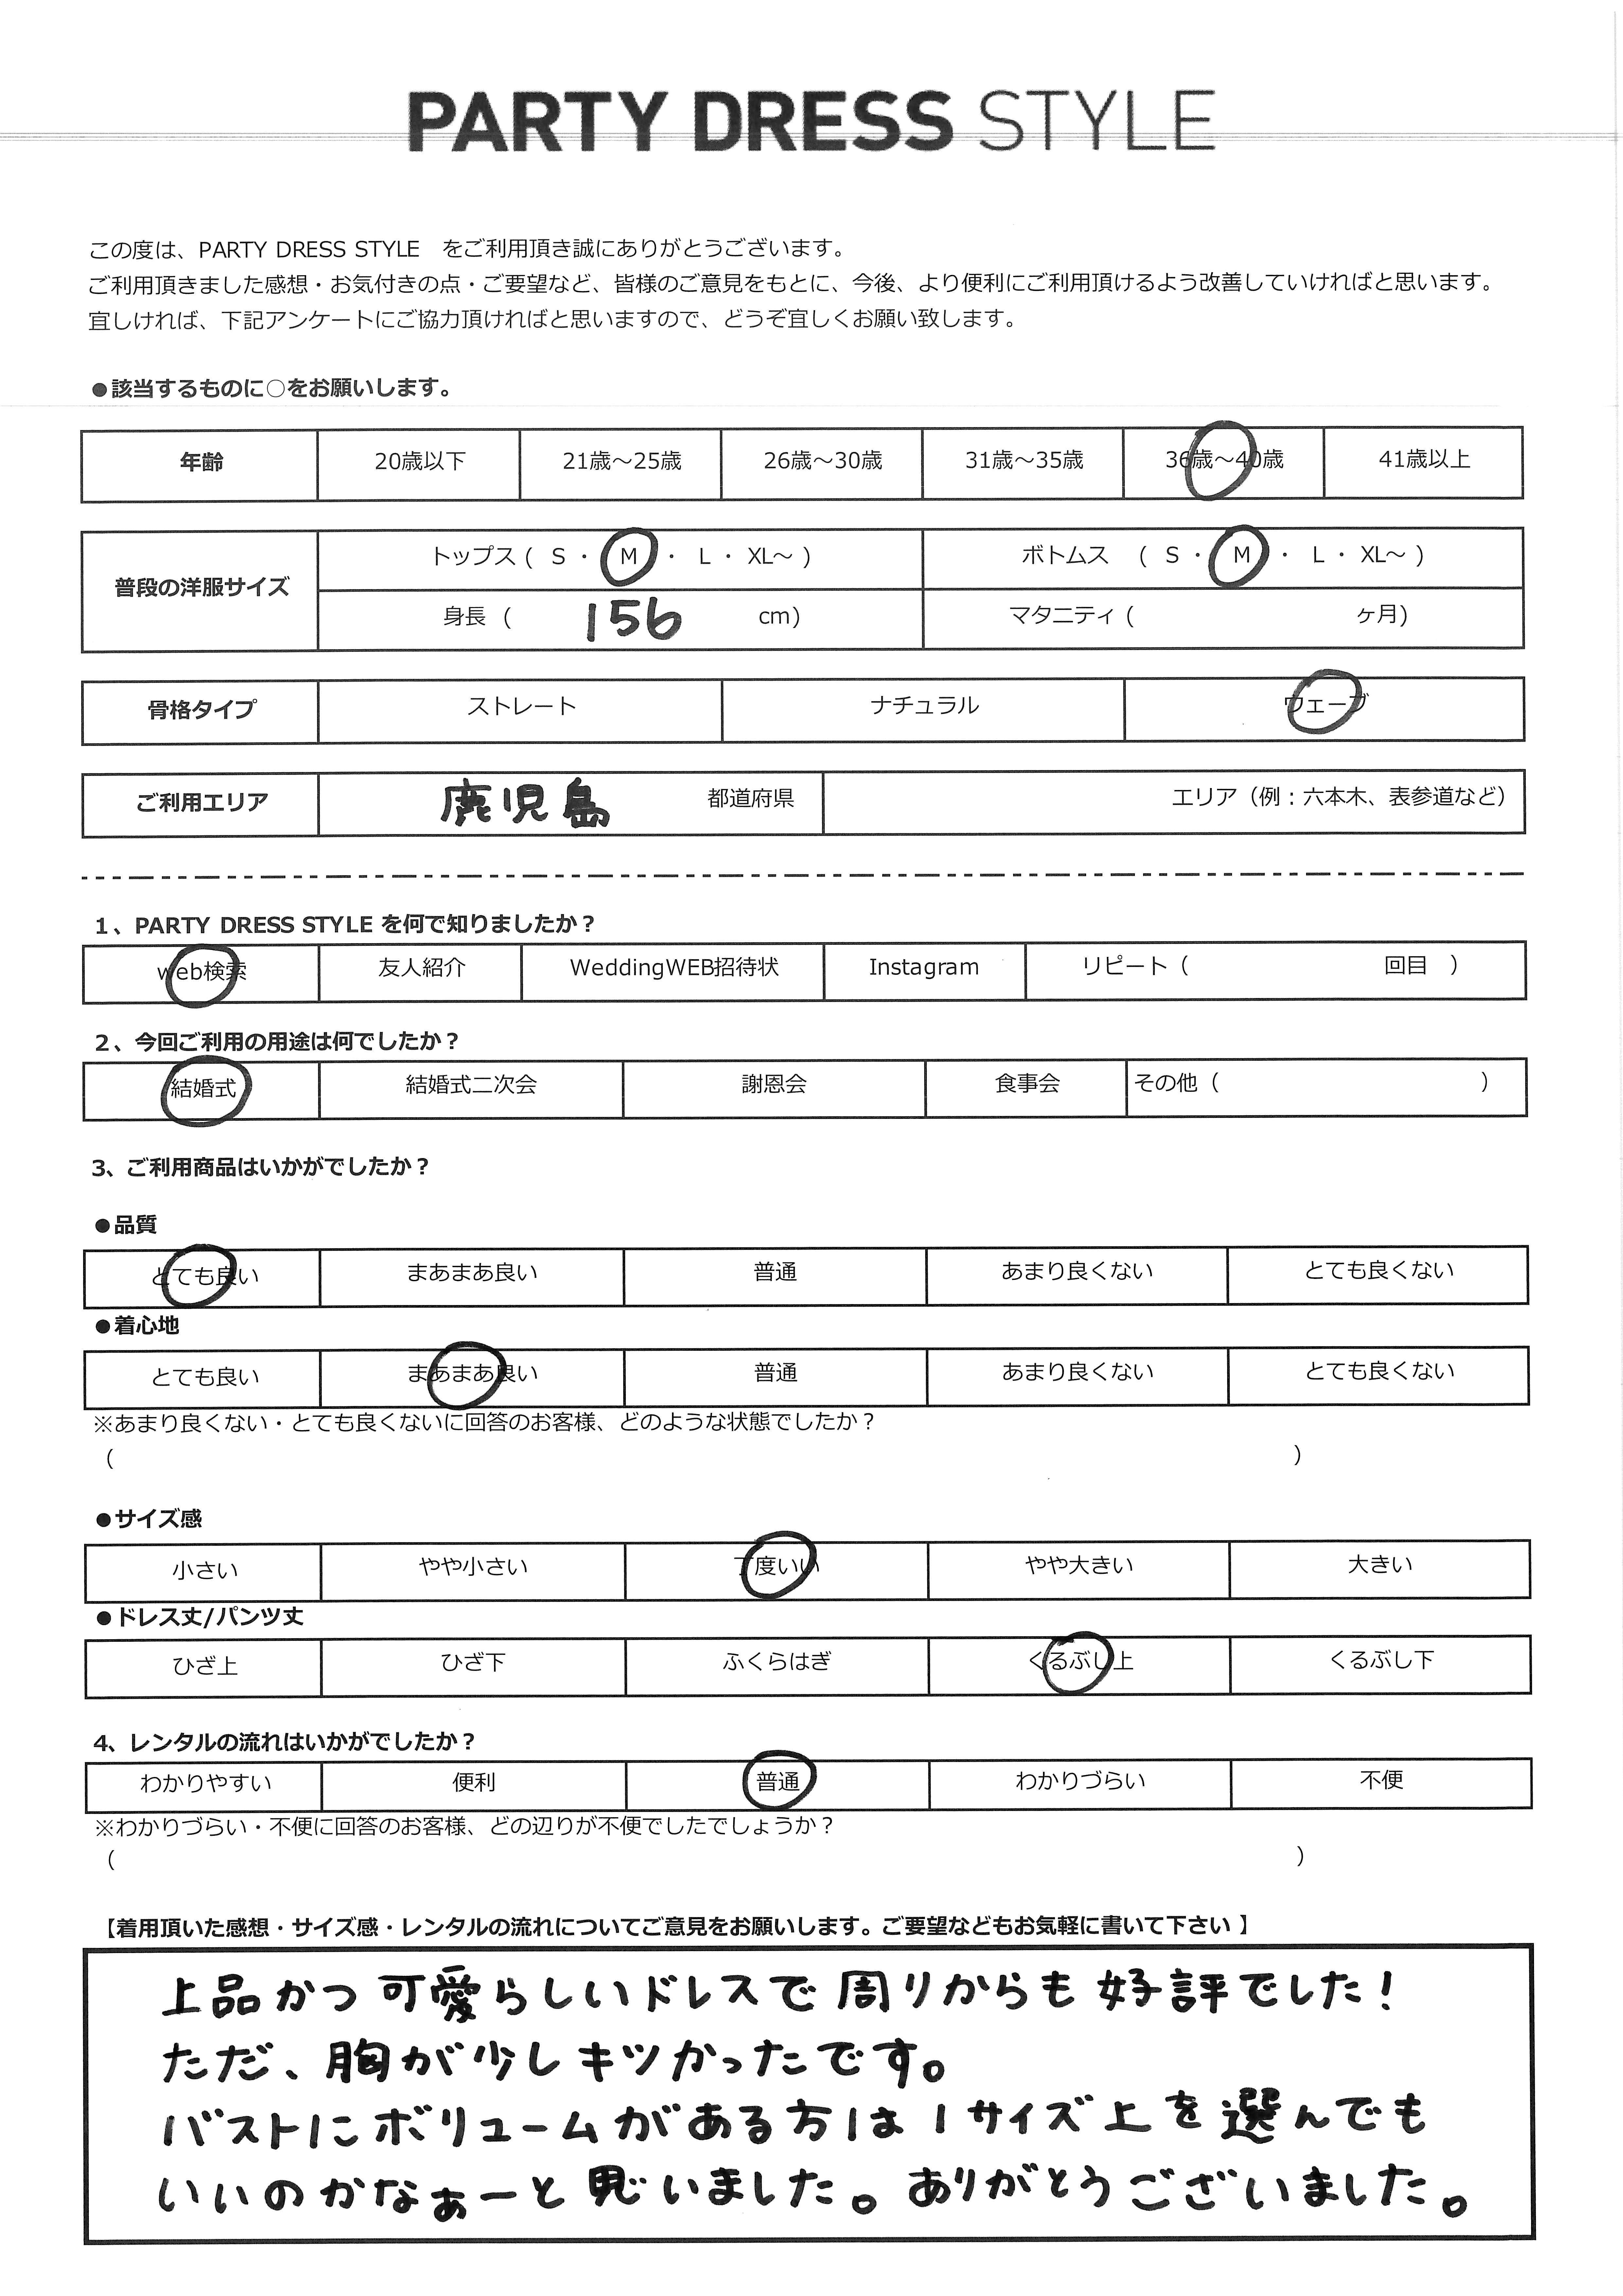 PARTY DRESS STYLE
この度は、PARTY DRESS STYLE　をご利用頂き誠にありがとうございます。
ご利用頂きました感想・お気付きの点・ご要望など、皆様のご意見をもとに、今後、より便利にご利用頂けるよう改善していければと思います。
宜しければ、下記アンケートにご協力頂ければと思いますので、どうぞ宜しくお願い致します。
●該当するものに○をお願いします。
年齢 20歳以下 21歳～25歳 26歳～30歳 31歳～35歳 36歳～40歳 41歳以上
普段の洋服サイズ トップス ( S ・ M ・ L ・ XL～ ) ボトムス ( S ・ M ・ L ・ XL～ )
身長 ( 156 cm) マタニティ ( ヶ月)
骨格タイプ ストレート ナチュラル ウェーブ
ご利用エリア 鹿児島 都道府県 エリア（例：六本木、表参道など）
1、PARTY DRESS STYLE を何で知りましたか？
web検索 友人紹介 WeddingWEB招待状 Instagram リピート（ 回目 ）
2、今回ご利用の用途は何でしたか？
結婚式 結婚式二次会 謝恩会 食事会 その他（ ）
3、ご利用商品はいかがでしたか？
●品質
とても良い まあまあ良い 普通 あまり良くない とても良くない
●着心地
とても良い まあまあ良い 普通 あまり良くない とても良くない
※あまり良くない・とても良くないに回答のお客様、どのような状態でしたか？
（ ）
●サイズ感
小さい やや小さい 丁度いい やや大きい 大きい
●ドレス丈/パンツ丈
ひざ上 ひざ下 ふくらはぎ くるぶし上 くるぶし下
4、レンタルの流れはいかがでしたか？
わかりやすい 便利 普通 わかりづらい 不便
※わかりづらい・不便に回答のお客様、どの辺りが不便でしたでしょうか？
（ ）
【着用頂いた感想・サイズ感・レンタルの流れについてご意見をお願いします。ご要望などもお気軽に書いて下さい 】
上品かつ可愛らしいドレスで周りからも好評でした！
ただ、胸が少しキツかったです。
バストにボリュームがある方は1サイズ上を選んでも
いいのかなぁーと思いました。ありがとうございました。